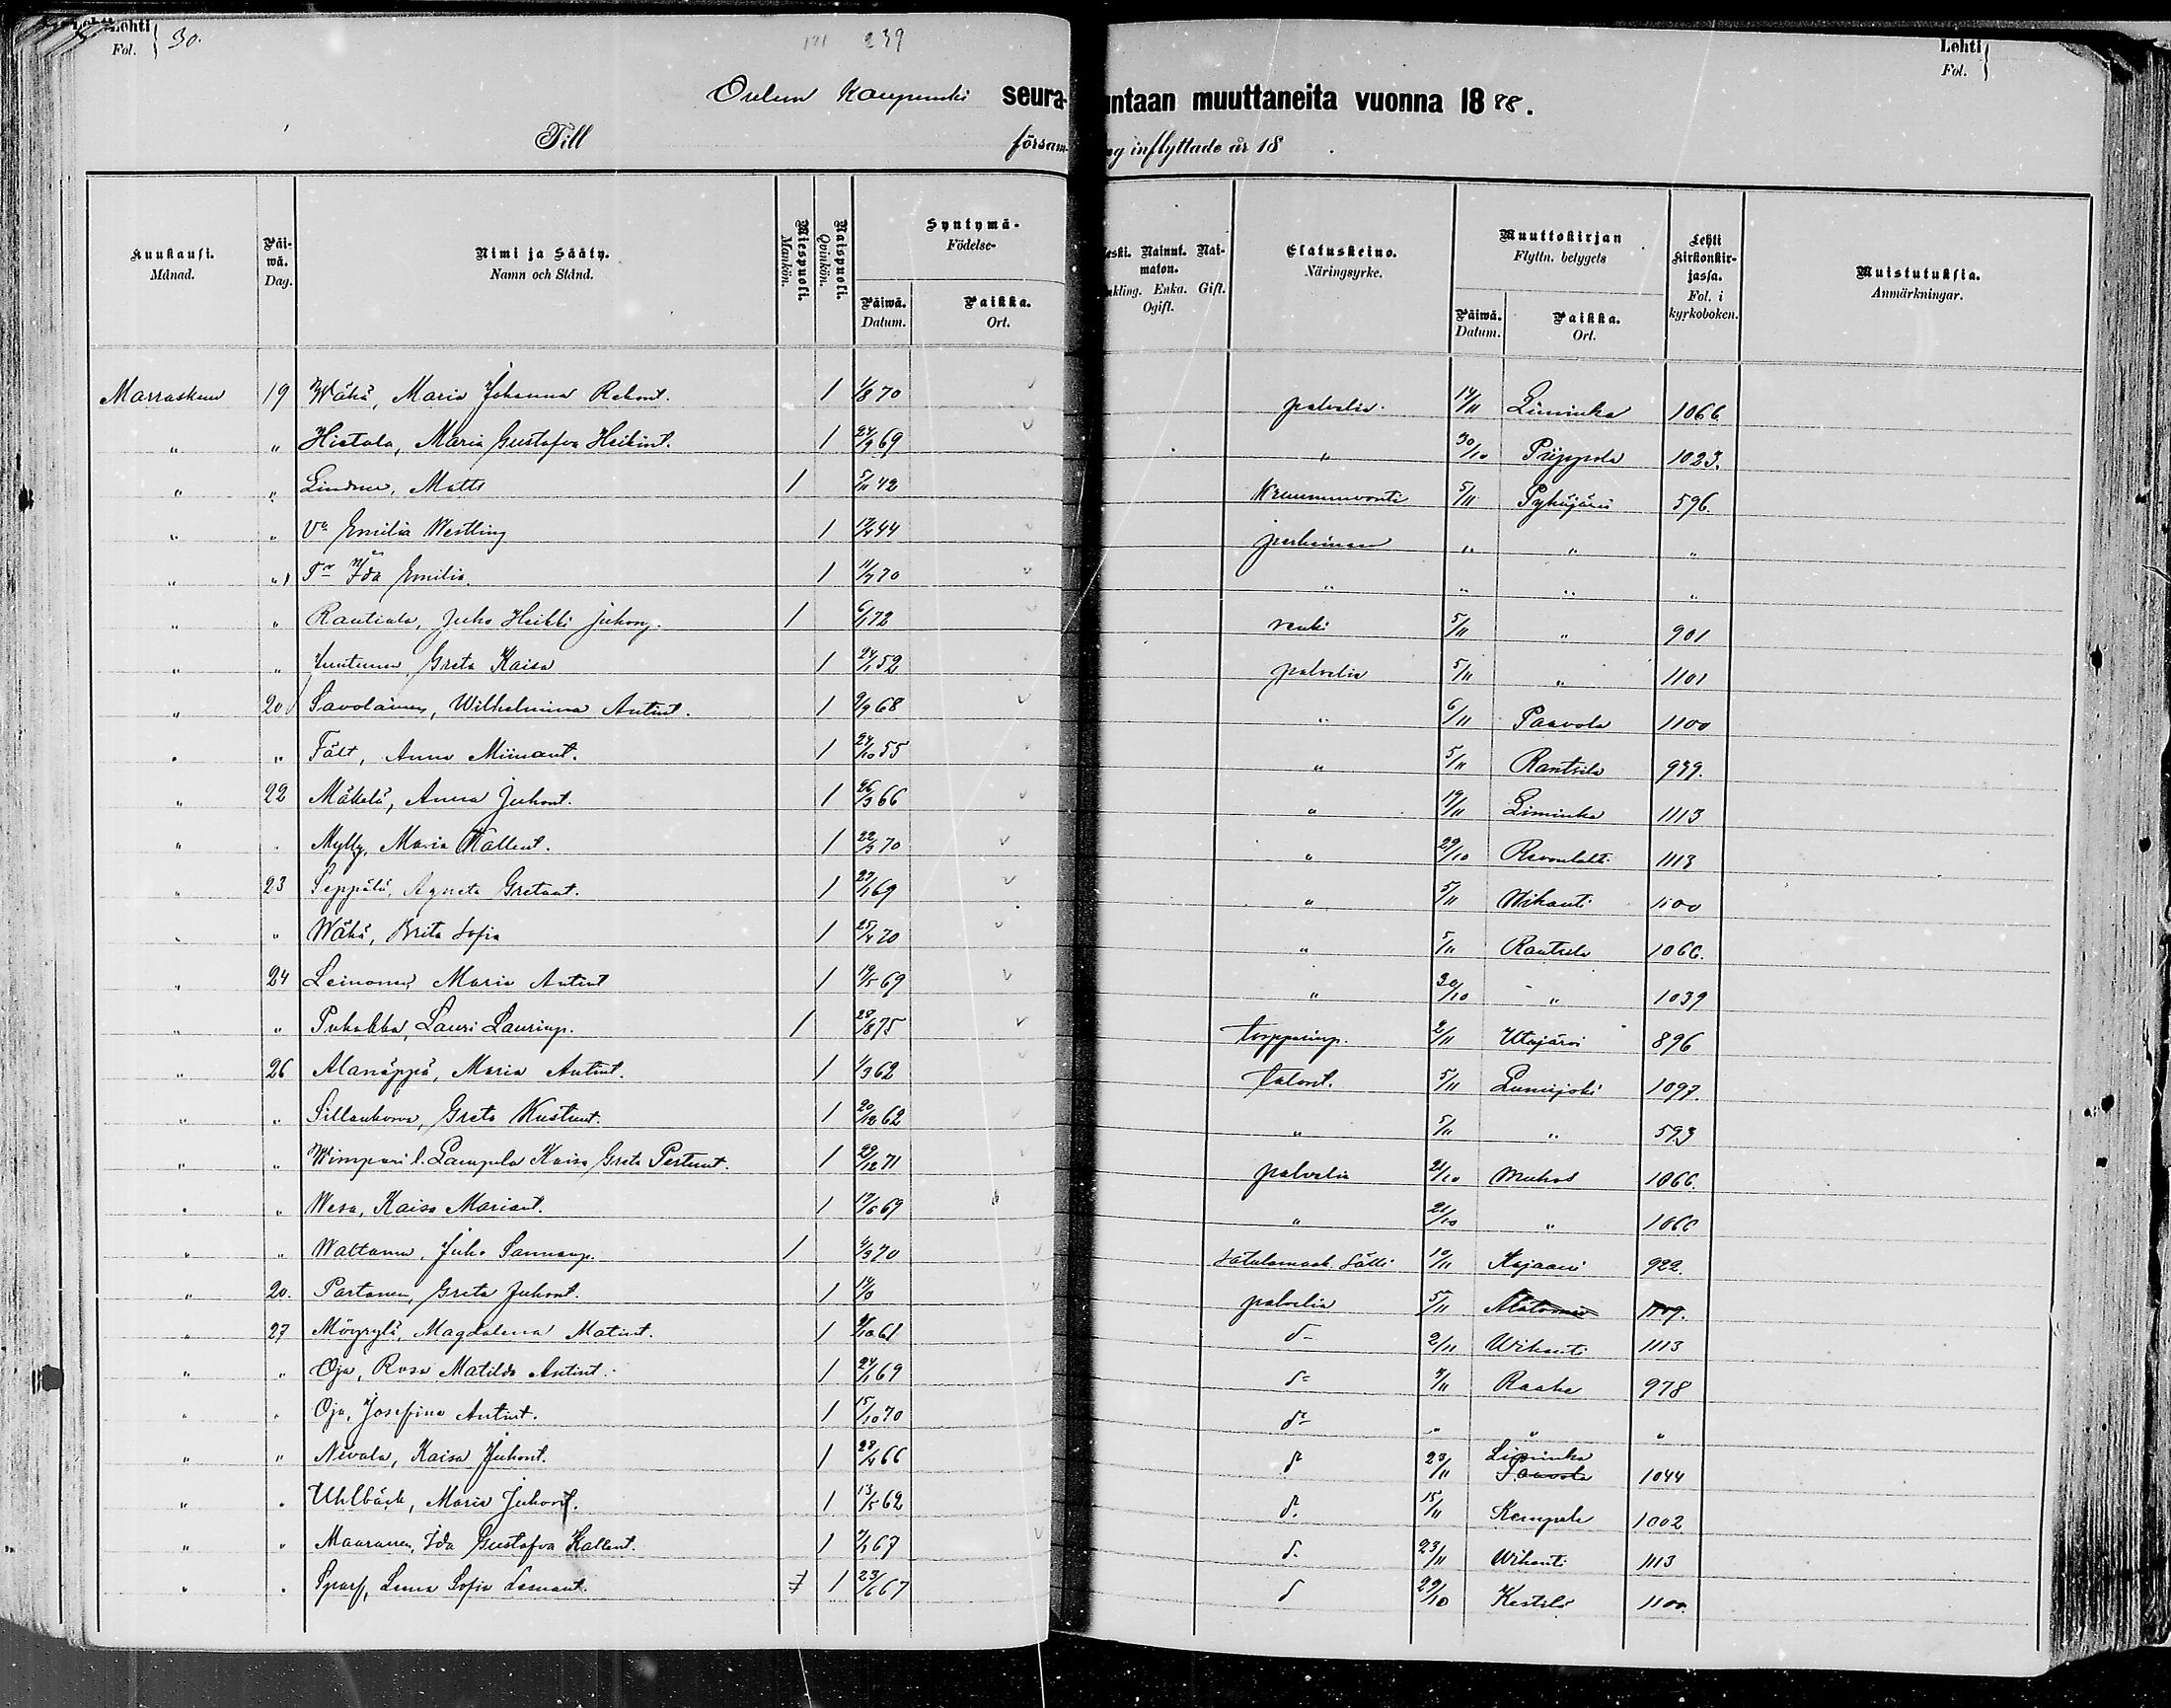 Lehti Fol. 30. 239 Lehti Fol.
Oulun Kaupunki seura- untaan muuttaneita vuonna 1888.
Till församling inflyttade år 18 .
Kuukausi. Månad. Päiwä. Day. Nimi ja Sääty. Namn och Stånd. Miespuoli. Mankön. Waispuoli. Qvinkön. Syntymä- Födelse- Päiwä. Datum. Paikka. Ort. Leski. Nainut. Naimaton. Enkling. Enka. Gift. Ogift. Elatuskeino. Näringsyrke. Muuttokirjan Flyttn. betygets Päiwä. Datum. Paikka. Ort. Lehti kirkonkirjassa. Fol. i kyrkoboken. Muistutuksia. Anmärkningar.
Marraskuu 19 Wähä, Maria Johanna 1 1/8 70 palvelia 14/11 Liminka 1066
" " Hietala, Maria Gustafva Heikint. 1 24/9 69 " 30/10 Piippola 1023.
" " Lindner, Matts 1 5/11 42 Kruununvouti 5/11 Pyhäjärvi 596.
" " Va Emilia Westling 1 44 perheineen " " "
" " Tr Ida Emilia. 1 11/7 70 " " " "
" " Rautiala, Juho Heikki Juhonp. 1 6/1 72 renki 5/11 " 901
" " Juntunen Greta Kaisa 1 24/1 52 palvelia 5/11 " 1101
" 20 Savolainen, Wilhelmina Antint. 1 9/9 68 " 6/11 Paavola 1100
" " Fält, Anna Miinant. 1 24/10 55 " 5/11 Rantsila 939.
" 22 Mäkelä, Anna Juhont. 1 26/3 66 " 19/11 Liminka 1113
" " Mylly, Maria Kallent. 1 22/3 70 " 29/10 Revonlahti 1113
" 23 Seppälä, Agneta Gretant. 1 27/1 69 " 5/11 Wihanti 1100
" " Wähä, Brita Sofia 1 25/4 70 " 5/11 Rantsila 1066.
" 24 Leinonen Maria Antint 1 19/5 69 " 30/10 " 1039
" " Puhakka, Lauri Laurinp. 1 28/8 75 torpparinp. 2/11 Utajärvi 896
" 26 Alanäppä, Maria Antint. 1 1/3 62 talont. 5/11 Lumijoki 1097.
" " Sillankorva, Greta Kustint. 1 20/12 62 " 5/11 " 593
" " Wimpari l. Lampela Kaisa Greta Pertunt. 1 29/12 71 palvelia 21/10 Muhos 1066.
" " Wesa, Kaisa Mariant. 1 17/6 69 " 21/10 " 1066
" " Waltanen, Juho Sannanp. 1 4/3 70 Satulamaak. sälli 10/11 Kajaani 922.
" 20. Partanen, Greta Juhont. 1 palvelia 5/11 1109.
" 27 Möyrylä, Magdalena Matint. 1 9/10 61 d- 2/11 Wihanti 1113
" " Oja, Rosa Matilda Antint. 1 24/1 69 d- 7/11 Raahe 978
" " Oja, Josefina Antint. 1 15/10 70 d- " " "
" " Nivala, Kaisa Juhont. 1 28/4 66 d- 23/11 Liminka Paavola 1044
" " Uhlbäck, Maria Juhont. 1 13/5 62 d. 15/11 Kempele 1002
" " Mauranen, Ida Gustafva Kallent. 1 7/1 67 d. 23/11 Wihanti 1113
" " Sparf, Leena Sofia 1 23/6 67 d 29/10 Kestilä 1100.